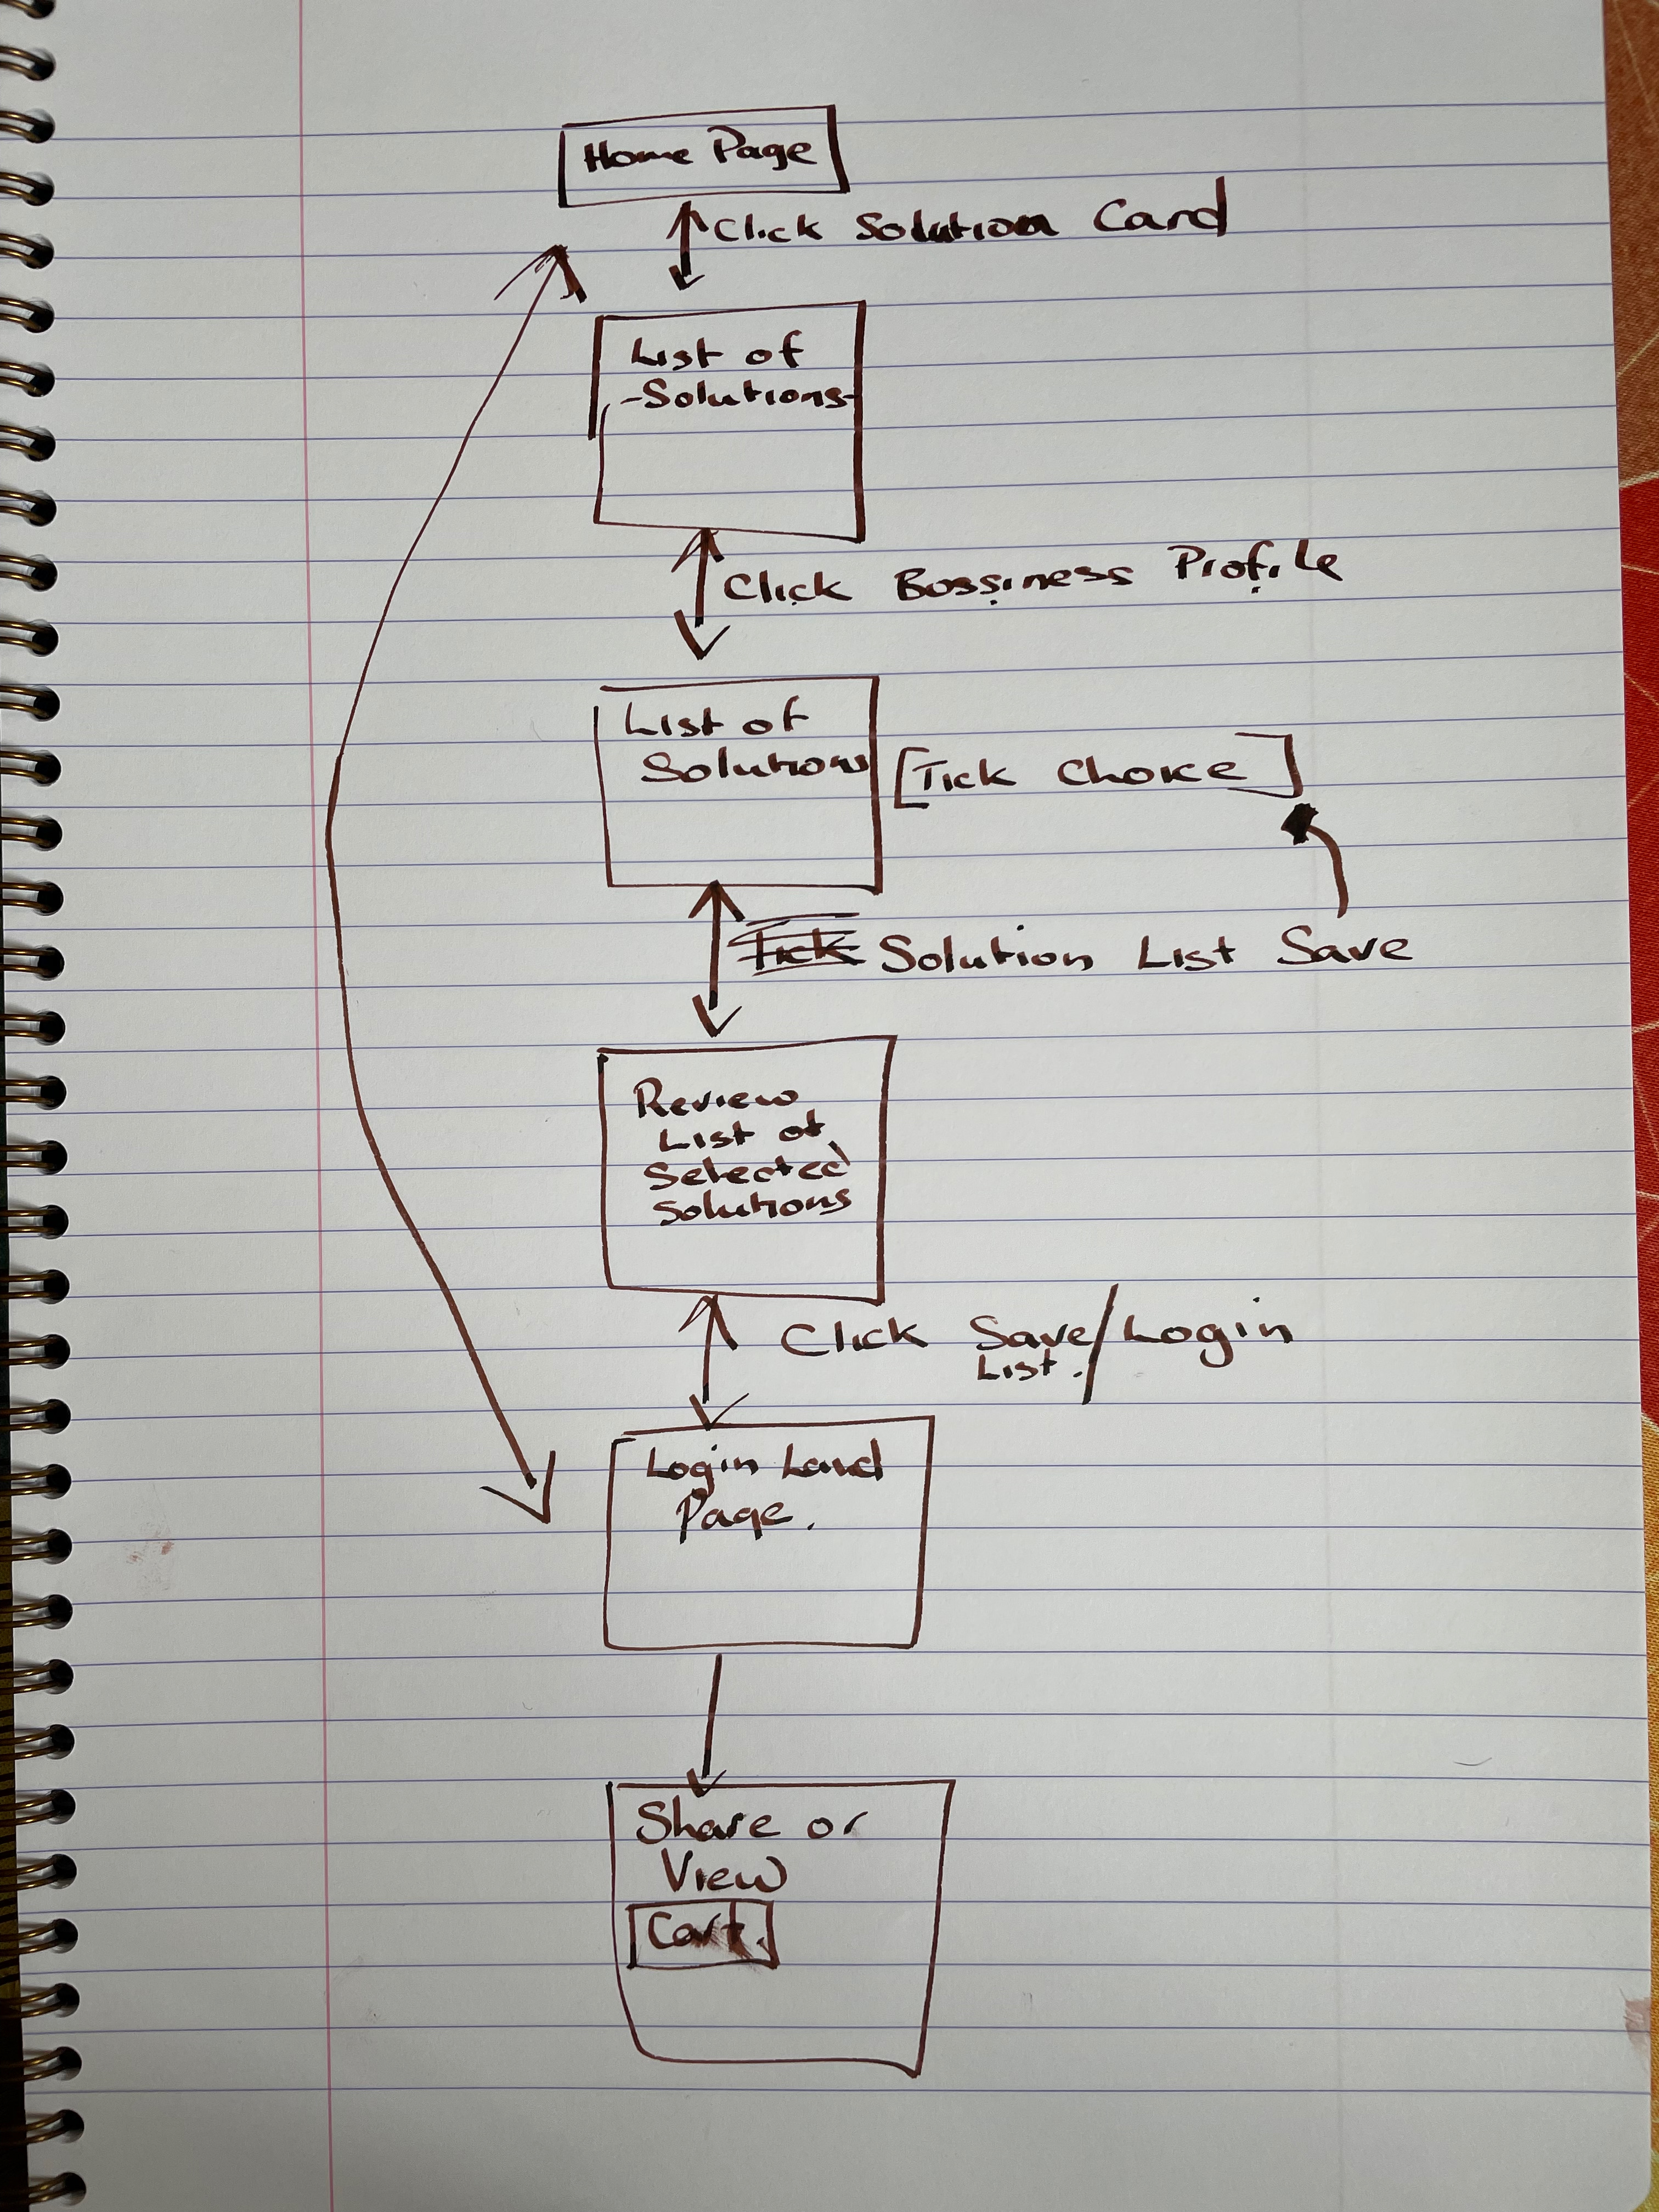 Home Page
Click Solution Card
List of
-Solutions-
Click Bossiness Profile
List of
Solutions [Tick Choice]
Tick Solution List Save
Review
List of
Selected
Solutions
Click Save/Login
List.
Login Land
Page.
Share or
View
Cart.